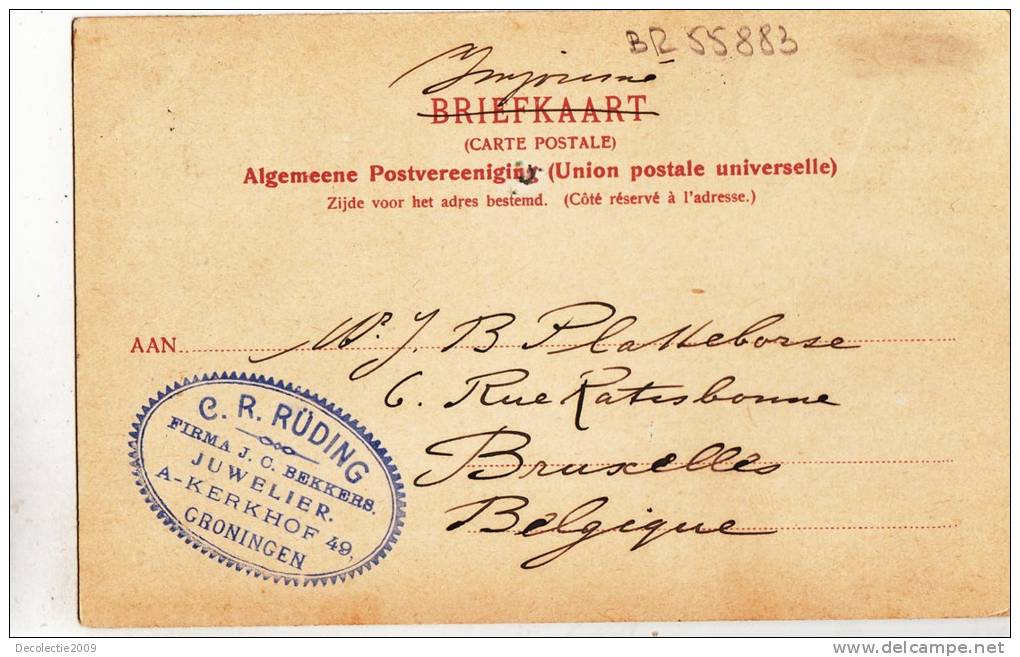 BR 55883
Imprimé
BRIEFKAART
(CARTE POSTALE)
Algemeene Postvereeniging (Union postale universelle)
Zijde voor het adres bestemd. (Côté réservé à l'adresse.)
AAN
Mr. J. B Platteborse
6. Rue Ratisbonne
Bruxelles
Belgique
C. R. RÜDING
FIRMA J. C. BEKKERS.
JUWELIER.
A-KERKHOF 49,
GRONINGEN
Decolectie2009
delcampe.net